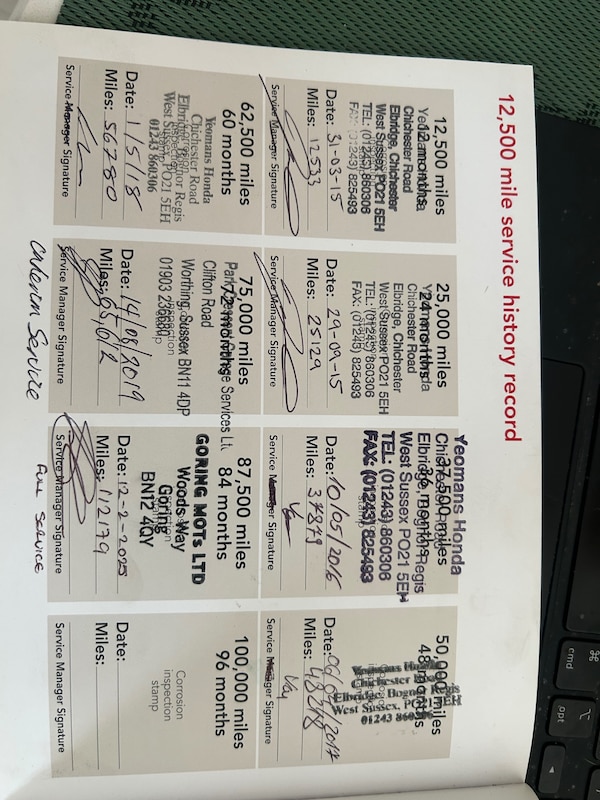 12,500 mile service history record
12,500 miles
12 months
Yeomans Honda
Chichester Road
Elbridge, Chichester
West Sussex PO21 5EH
TEL: (01243) 860306
FAX: (01243) 825493
Date: 31-03-15
Miles: 12533
Service Manager Signature
25,000 miles
24 months
Yeomans Honda
Chichester Road
Elbridge, Chichester
West Sussex PO21 5EH
TEL: (01243) 860306
FAX: (01243) 825493
Date: 29-09-15
Miles: 25129
Service Manager Signature
37,500 miles
36 months
Yeomans Honda
Chichester Road
Elbridge, Bognor Regis
West Sussex PO21 5EH
TEL: (01243) 860306
FAX: (01243) 825493
stamp
Date: 10/05/2016
Miles: 34849
Service Manager Signature
50,000 miles
48 months
Yeomans Honda
Chichester Road
Elbridge, Bognor Regis
West Sussex, PO21 5EH
01243 860306
Date: 2017
Miles:
Service Manager Signature
62,500 miles
60 months
Yeomans Honda
Chichester Road
Elbridge, Bognor Regis
West Sussex PO21 5EH
01243 860306
Date: 1/5/18
Miles: 56780
Service Manager Signature
75,000 miles
72 months
Services Lt
Clifton Road
Worthing, Sussex BN11 4DP
01903
inspection
stamp
Date: 14/08/2019
Miles: 65,612
Service Manager Signature
Interim Service
87,500 miles
84 months
GORING MOTs LTD
Woods Way
Goring
BN12 4QY
Date: 12-2-2025
Miles: 112179
Service Manager Signature
FULL SERVICE
100,000 miles
96 months
Corrosion
inspection
stamp
Date:
Miles:
Service Manager Signature
cmd
⌘
opt